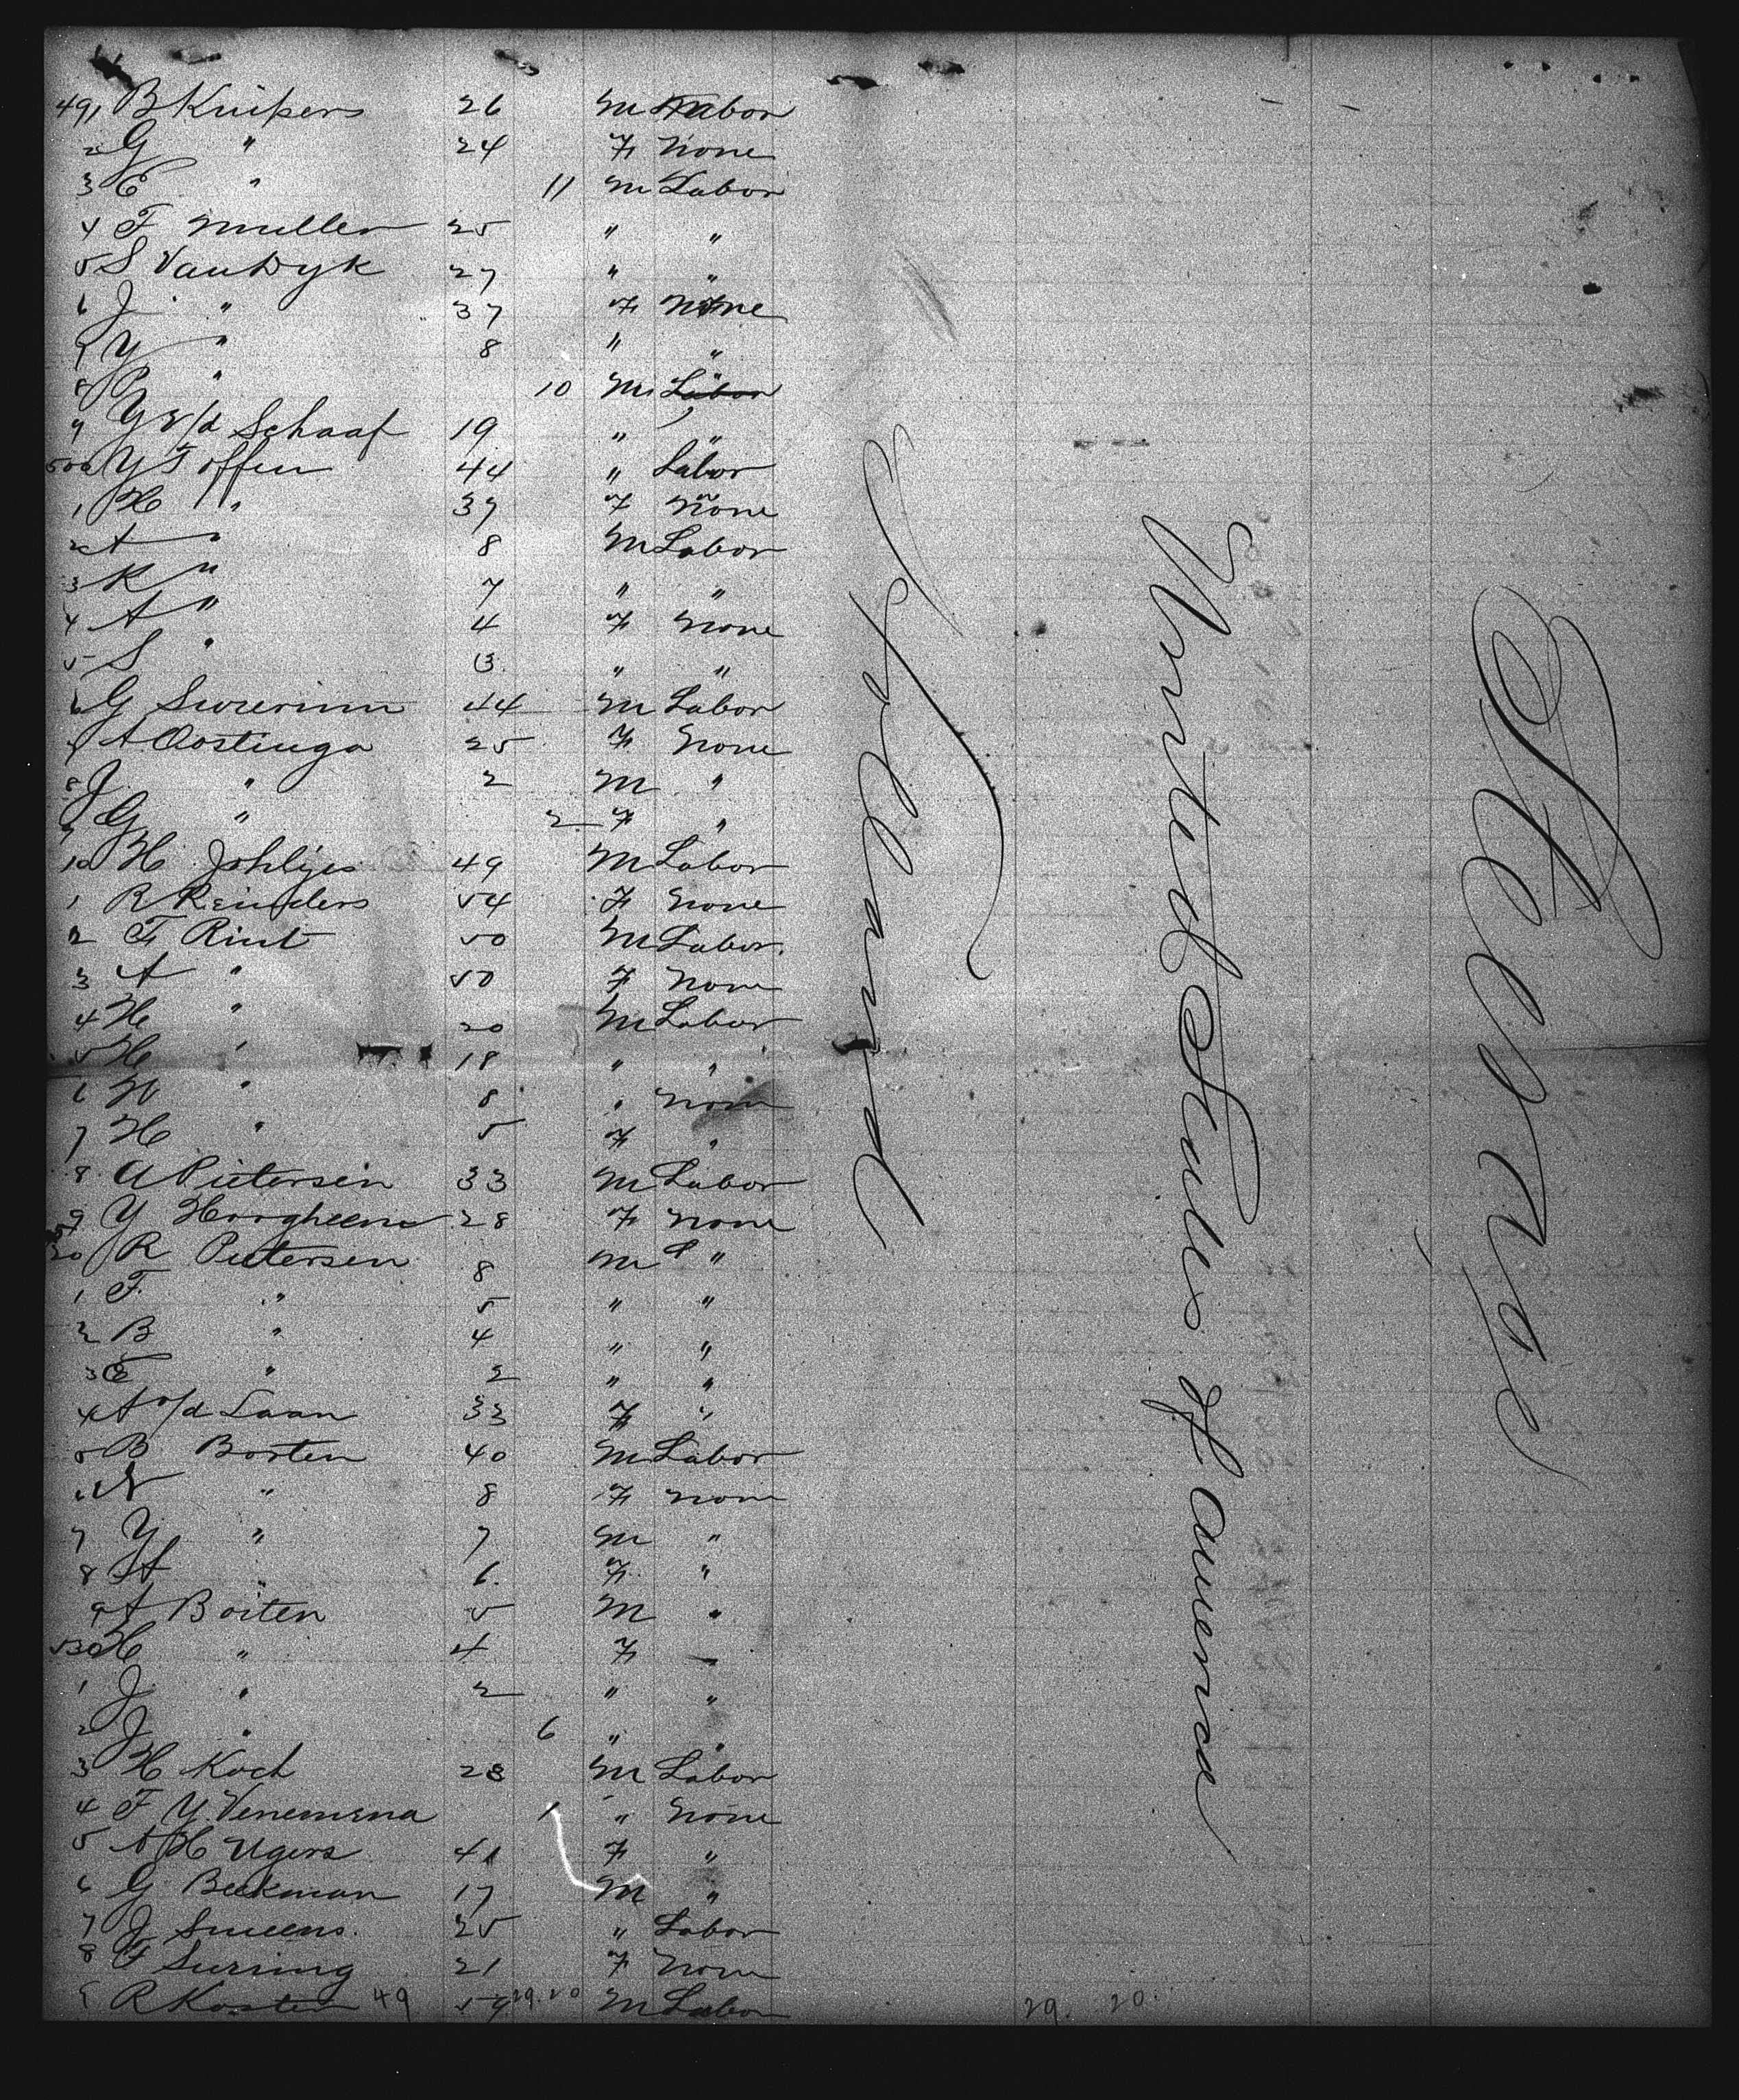 491 B Kuipers 26 M Labor
2 G " 24 F None
3 E " 11 M Labor
4 F Muller 25 " "
5 S VanWyk 27 " "
6 J " 37 F None
7 Y " 8 " "
8 P " 10 M Labor
9 Y v/d Schaaf 19 " "
500 Y Toffen 44 " Labor
1 H " 39 F None
2 A " 8 M Labor
3 K " 7 " "
4 A " 4 F None
5 S " 13 " "
6 G 44 M Labor
7 A Oostinga 25 F None
8 J " 2 M "
9 G " 2 F "
10 H 49 M Labor
1 R Reinders 54 F None
2 F Rint 50 M Labor
3 A " 50 F None
4 H " 20 M Labor
5 H " 18 " "
6 W " 8 " None
7 H " 5 F "
8 A Pietersen 33 M Labor
9 Y 28 F None
20 R Pietersen 8 M "
1 F " 5 " "
2 B " 4 " "
3 " 2 " "
4 A v/d Laan 33 F "
5 B Bosten 40 M Labor
6 " 8 F None
7 Y " 7 M "
8 A " 6 F "
9 A Boiten 5 M "
530 H " 4 F "
1 J " 2 " "
2 J " 6 " "
3 H Koch 28 M Labor
4 F Y Venemena 1 " None
5 A H Ugers 41 F "
6 G Beekman 17 M "
7 J 25 " Labor
8 F 21 F None
9 R Koster 49 59 29.20 M Labor
29. 20.
Holland
United States of America